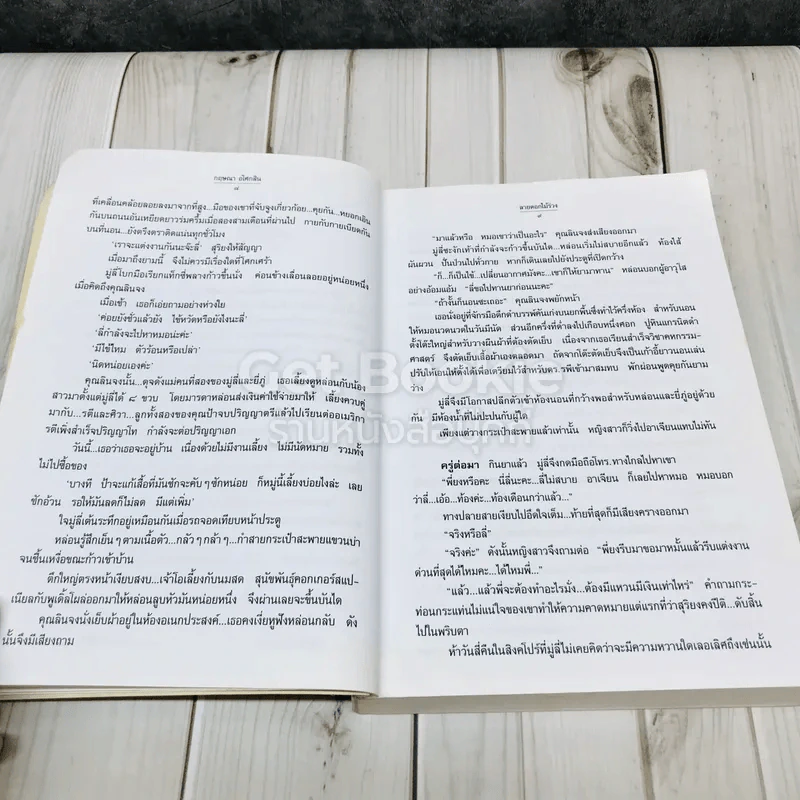 กฤษณา อโศกสิน
๘
ที่เคลื่อนคล้อยลอยลงมาจากที่สูง...มือของเขาที่จับจูงเกี่ยวก้อย...คุยกัน...หยอกเอิน
กันบนถนนอันเหยียดยาวร่มครึ้มเมื่อสองสามเดือนที่ผ่านไป กายกับกายเบียดกัน
บนที่นอน...ยังตรึงตราติดแน่นทุกชั่วโมง
‘เราจะแต่งงานกันนะจ๊ะลี่’ สุริยงให้สัญญา
เมื่อมาถึงยามนี้ จึงไม่ควรมีเรื่องใดที่โศกเศร้า
มู่ลี่โบกมือเรียกแท็กซี่พลางก้าวขึ้นนั่ง ค่อนข้างเลื่อนลอยอยู่หน่อยหนึ่ง
เมื่อคิดถึงคุณลินจง
เมื่อเช้า เธอก็เอ่ยถามอย่างห่วงใย
‘ค่อยยังชั่วแล้วยัง ใช้หวัดหรือยังไงนะลี่’
‘ลี่กำลังจะไปหาหมอน่ะค่ะ’
‘มีไข้ไหม ตัวร้อนหรือเปล่า’
‘นิดหน่อยเองค่ะ’
คุณลินจงนั้น...ดุจดังแม่คนที่สองของมู่ลี่และยี่ภู่ เธอเลี้ยงดูหล่อนกับน้อง
สาวมาตั้งแต่มู่ลี่ได้ ๘ ขวบ โดยมารดาหล่อนส่งเงินค่าใช้จ่ายมาให้ เลี้ยงควบคู่
มากับ...รติและศิวา...ลูกทั้งสองของคุณป้าจบปริญญาตรีแล้วไปเรียนต่ออเมริกา
รติเพิ่งสำเร็จปริญญาโท กำลังจะต่อปริญญาเอก
วันนี้...เธอว่าเธอจะอยู่บ้าน เนื่องด้วยไม่มีงานเลี้ยง ไม่มีนัดหมาย รวมทั้ง
ไม่ไปซื้อของ
‘บางที ป้าจะแก้เสื้อที่มันชักจะคับๆ ซักหน่อย ก็หมู่นี้เลี้ยงบ่อยไงล่ะ เลย
ชักอ้วน รอให้มันลดก็ไม่ลด มีแต่เพิ่ม’
ใจมู่ลี่เต้นระทึกอยู่เหมือนกันเมื่อรถจอดเทียบหน้าประตู
หล่อนรู้สึกเย็นๆ ตามเนื้อตัว...กลัวๆ กล้าๆ...กำสายกระเป๋าสะพายแขวนบ่า
จนชื้นเหงื่อขณะก้าวเข้าบ้าน
ตึกใหญ่ตรงหน้าเงียบสงบ...เจ้าโอเลี้ยงกับนมสด สุนัขพันธุ์คอกเกอร์สแป-
เนียลกับพูเดิ้ลโผล่ออกมาให้หล่อนลูบหัวมันหน่อยหนึ่ง จึงผ่านเลยจะขึ้นบันได
คุณลินจงนั่งเย็บผ้าอยู่ในห้องอเนกประสงค์...เธอคงเงี่ยหูฟังหล่อนกลับ ดัง
นั้นจึงมีเสียงถาม
ลายดอกไม้ร่วง
๙
“มาแล้วหรือ หมอเขาว่าเป็นอะไร” คุณลินจงส่งเสียงออกมา
มู่ลี่ชะงักเท้าที่กำลังจะก้าวขึ้นบันได...หล่อนเริ่มไม่สบายอีกแล้ว ท้องไส้
ผันผวน ปั่นป่วนไปทั่วกาย หากก็เดินเลยไปยังประตูที่เปิดกว้าง
“ก็...ก็เป็นไข้...เปลี่ยนอากาศมังคะ...เขาก็ให้ยามาทาน” หล่อนบอกผู้อาวุโส
อย่างอ้อมแอ้ม “ลี่ขอไปทานยาก่อนนะคะ”
“ถ้างั้นก็นอนซะเถอะ” คุณลินจงพยักหน้า
เธอนั่งอยู่ที่จักรมือดึกดำบรรพ์คันเก่งบนยกพื้นซึ่งทำไว้ครึ่งห้อง สำหรับนอน
ให้หมอนวดนวดในวันมีนัด ส่วนอีกครึ่งที่ต่ำลงไปเกือบหนึ่งศอก ปูหินแกรนิตดำ
ตั้งโต๊ะใหญ่สำหรับวางผืนผ้าที่ต้องตัดเย็บ เนื่องจากเธอเรียนสำเร็จวิชาคหกรรม-
ศาสตร์ จึงตัดเย็บเสื้อผ้าเองตลอดมา ถัดจากโต๊ะตัดเย็บจึงเป็นเก้าอี้ยาวนอนเล่น
ปรับให้เอนได้ซึ่งได้เพื่อเตรียมไว้สำหรับดร.รพีเข้ามาสมทบ พักผ่อนพูดคุยกันยาม
ว่าง
มู่ลี่จึงมีโอกาสปลีกตัวเข้าห้องนอนที่กว้างพอสำหรับหล่อนและยี่ภู่อยู่ด้วย
กัน มีห้องน้ำที่ไม่ปะปนกับผู้ใด
เพียงแต่วางกระเป๋าสะพายแล้วเท่านั้น หญิงสาวก็วิ่งไปอาเจียนแทบไม่ทัน
ครู่ต่อมา กินยาแล้ว มู่ลี่จึงกดมือถือโทร.ทางไกลไปหาเขา
“พี่ยงหรือคะ นี่ลี่นะคะ...ลี่ไม่สบาย อาเจียน ก็เลยไปหาหมอ หมอบอก
ว่าลี่...เอ้อ...ท้องค่ะ...ท้องเดือนกว่าแล้ว...”
ทางปลายสายเงียบไปอึดใจเต็ม...ท้ายที่สุดก็มีเสียงครางออกมา
“จริงหรือลี่”
“จริงค่ะ” ดังนั้นหญิงสาวจึงถามต่อ “พี่ยงรีบมาขอมาหมั้นแล้วรีบแต่งงาน
ด่วนที่สุดได้ไหมคะ...ได้ไหมพี่...”
“แล้ว...แล้วพี่จะต้องทำอะไรมั่ง...ต้องมีแหวนมีเงินเท่าไหร่” คำถามกระ-
ท่อนกระแท่นไม่แน่ใจของเขาทำให้ความคาดหมายแต่แรกที่ว่าสุริยงคงปีติ...ดับสิ้น
ไปในพริบตา
ห้าวันสี่คืนในสิงคโปร์ที่มู่ลี่ไม่เคยคิดว่าจะมีความหวานใดเลอเลิศถึงเช่นนั้น
Get Bookie
ร้านหนังสือบุ๊คกี้